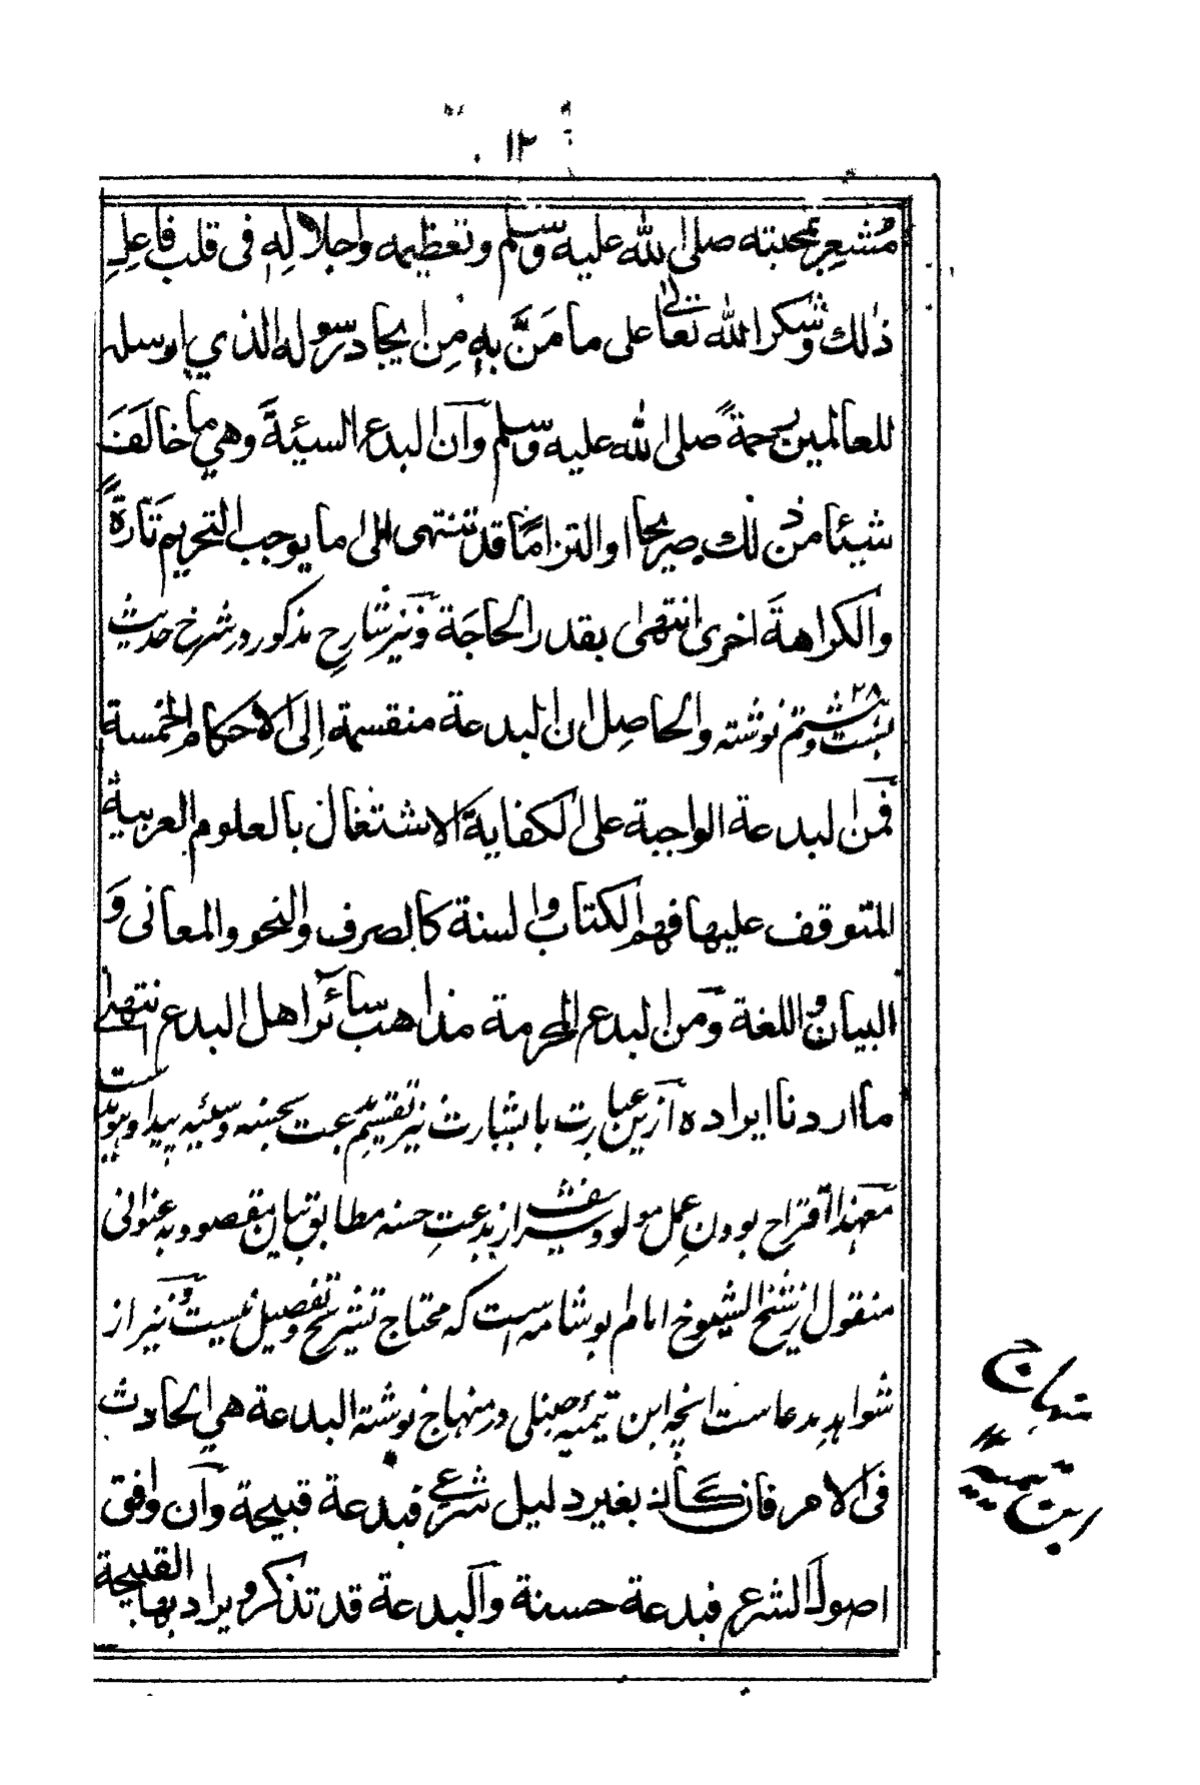 ١٢
مُشعِر بمحبته صلى الله عليه وسلم وتعظيمه واجلالِهِ فى قلب فاعلِ
ذٰلك وشكرا لله تعالىٰ على ما مَنَّ بهٖ مِن ايجاد رسوله الذي ارسله
للعالمين رحمةً صلى الله عليه وسلم وآن البدع السيئةَ وهي ما خالَفَ
شيئا من ذٰلك صريحا او التزامًا قد تنتهى الى ما يوجب التحريم تَارةً
والكراهةَ اخرى انتهىٰ بقدر الحاجَة ونيز شارح مذكور در شرح حديث
بست وهشتم ٢٨ نوشته والحاصِل ان البدعة منقسمة اِلى الاحكام الخمسة
فمن البدعة الواجبة على الكفاية الاشتغال بالعلوم العربية
المتوقف عليها فهم الكتاب والسنة كالصرف والنحو والمعانى وَ
البيان واللغة ومن البدع المحرمة مذاهب سائر اهل البدع انتهىٰ
ما اردنا ايراده ازين عبارت بابشارت نيز تقسيم بدعت بحسنه وسيئه پيدا وهويداست
معهذا اقتراح بودن عمل مولود شريف از بدعتِ حسنه مطابق تبيان مقصود به عنوانى
منقول از شيخ الشيوخ امام ابو شامه است كه محتاج تشريح وتفصيل نيست ونيز از
شواهدِ مدعاست انچه ابن تيميه حنبلى در منهاج نوشته البدعة هي الحادث
فى الامر فان كان بغير دليل شرعي فبدعة قبيحة وآن وافق
اصول الشرع فبدعة حسنة والبدعة قد تذكر ويراد بها القبيحة
منهاج
ابن تيميه